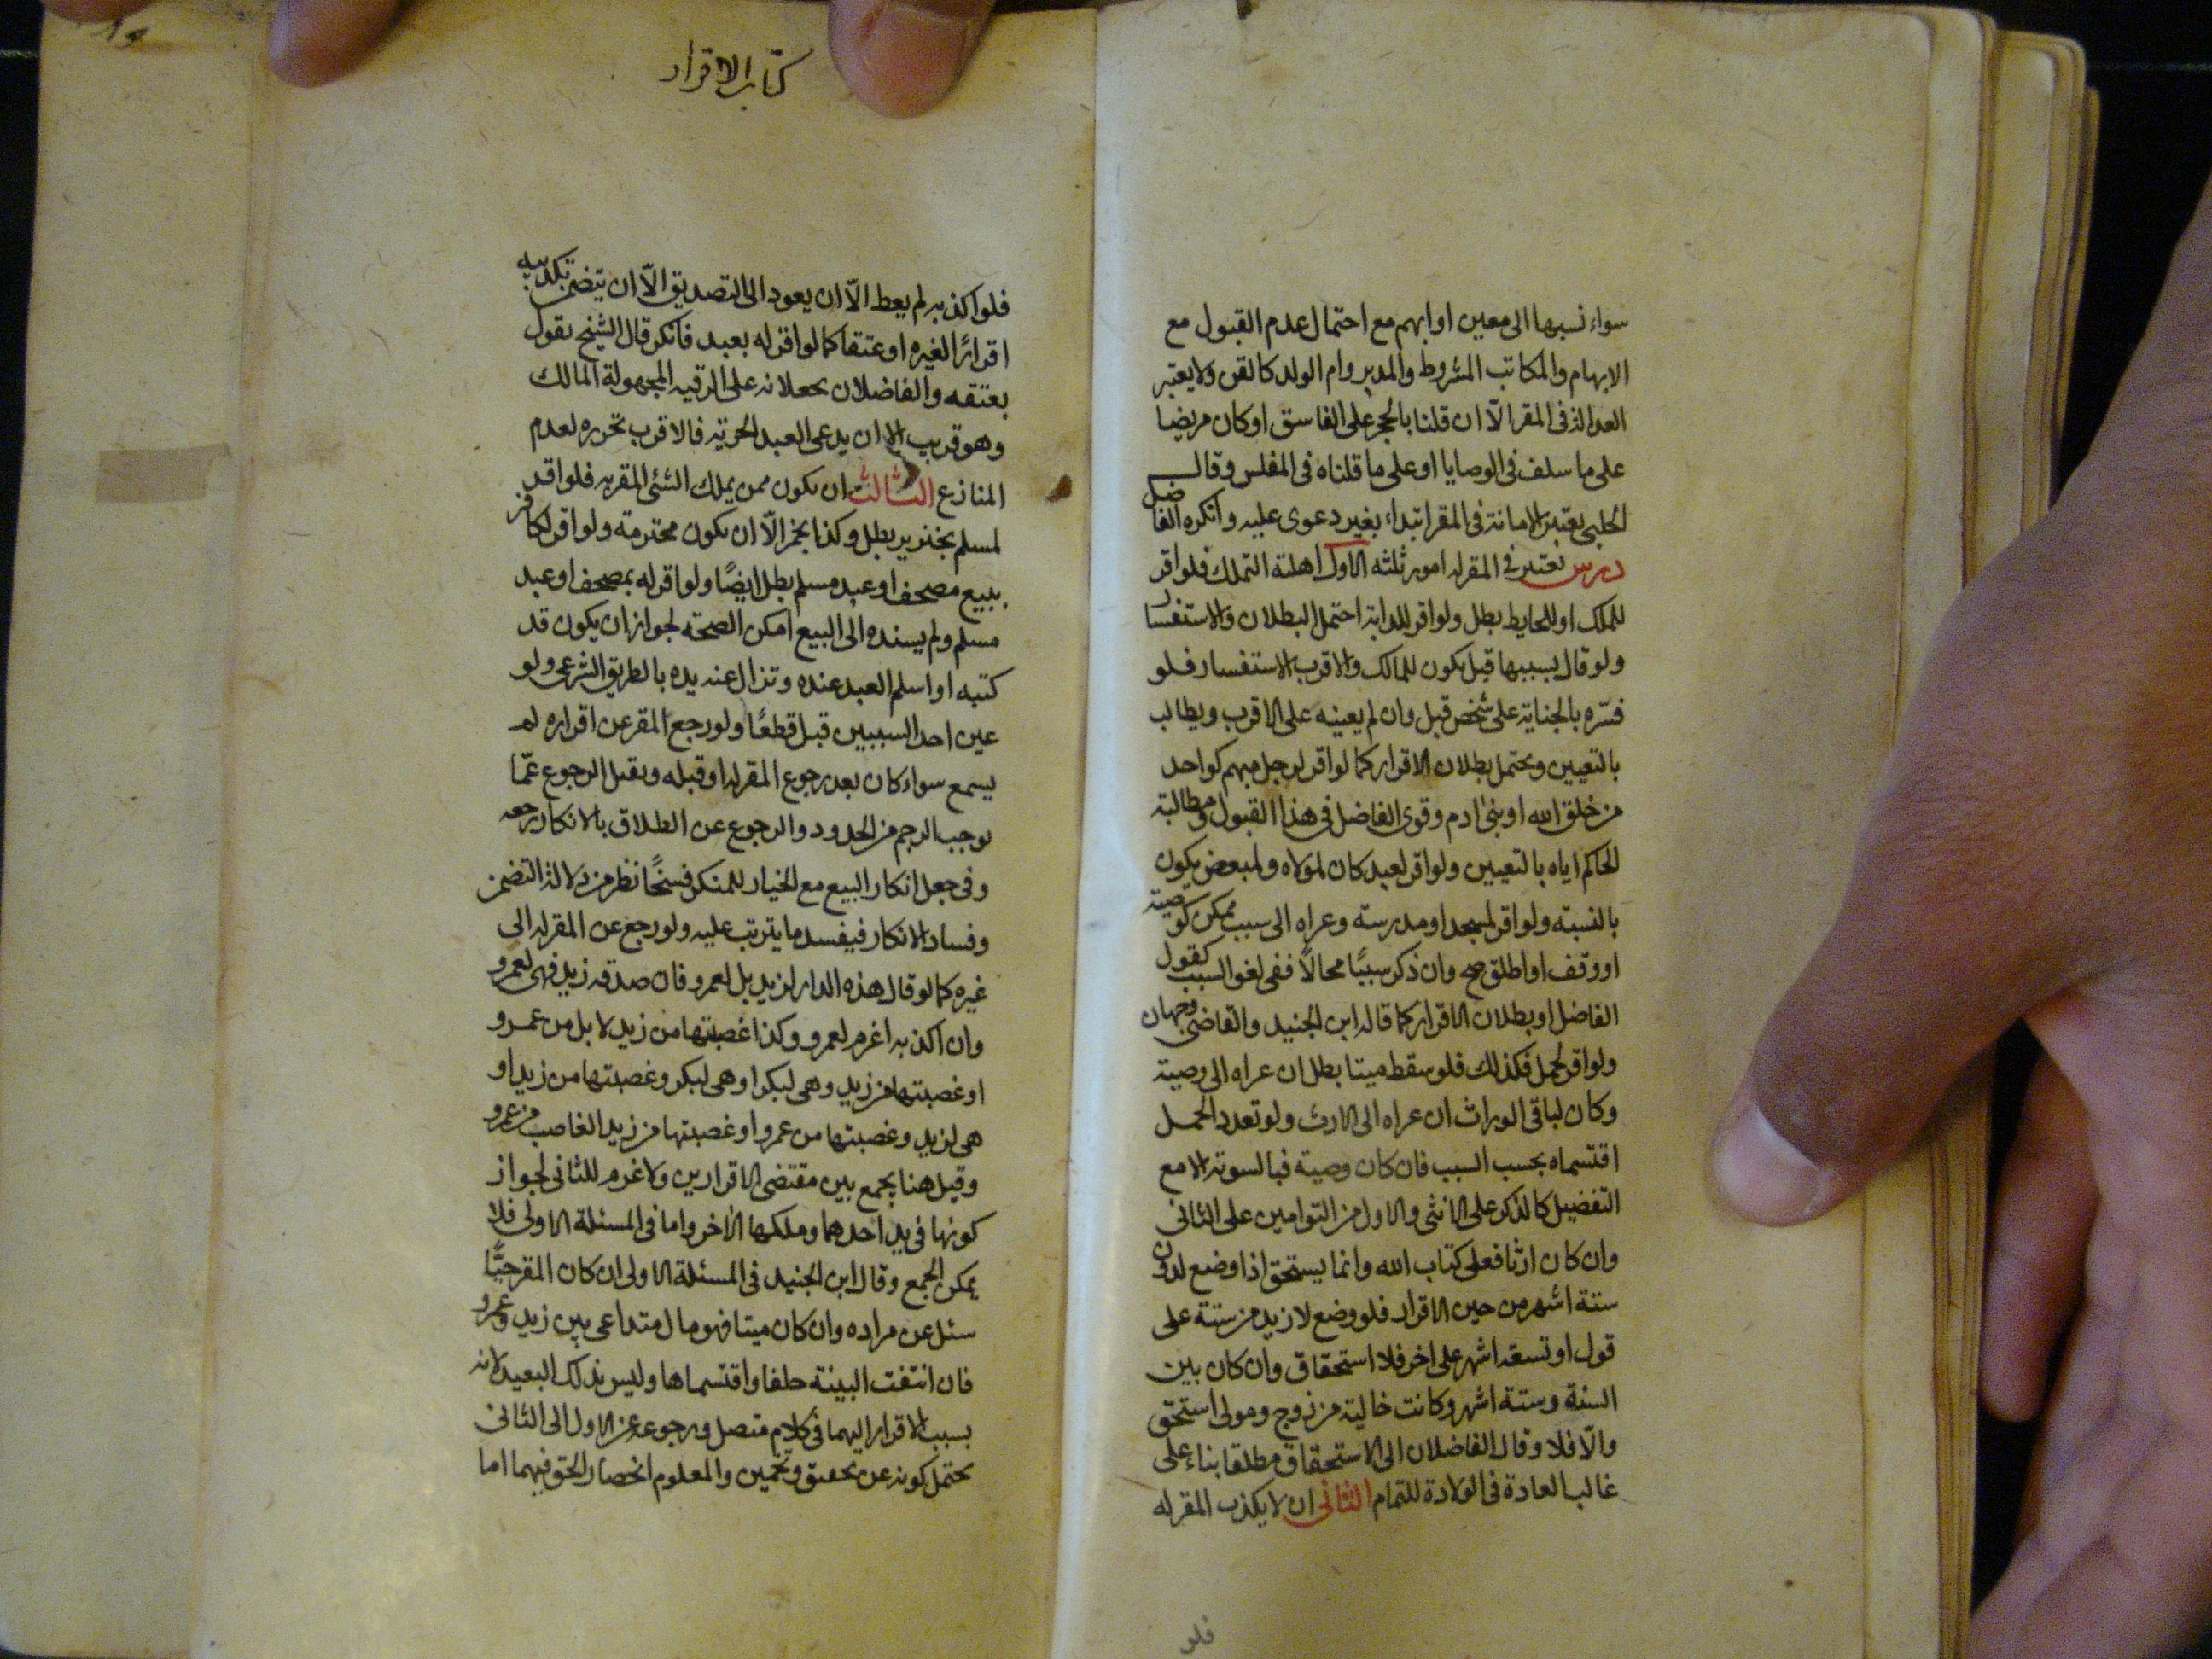 سواء نسبها الى معين او ابهم مع احتمال عدم القبول مع
الابهام والمكاتب المشروط والمدبر وام الولد كالقن ولا يعتبر
العدالة فى المقر الّا ان قلنا بالحجر على الفاسق او كان مريضا
على ما سلف فى الوصايا او على ما قلناه فى المفلس وقال
الحلبى يعتبر الامانة فى المقر ابتداء بغير دعوى عليه وانكره الفاضل
درس يعتبر فى المقر له امور ثلثه الاول اهلية التملك فلو اقر
للملك او للحايط بطل ولو اقر للدابة احتمل البطلان والاستفسار
ولو قال بسببها قيل يكون للمالك والاقرب الاستفسار فلو
فسّره بالجناية على شخص قبل وان لم يعينه على الاقرب ويطالب
بالتعيين ويحتمل بطلان الاقرار كما لو اقر لرجل مبهم كواحد
من خلق الله او بنى ادم وقوى الفاضل فى هذا القبول ومطالبة
الحاكم اياه بالتعيين ولو اقر لعبد كان لمولاه ولمبعض يكون
بالنسبة ولو اقر لمسجد او مدرسة وعزاه الى سبب ممكن كوصية
او وقف او اطلق صح وان ذكر سببًا محالًا ففى لغو السبب كقول
الفاضل او بطلان الاقرار كما قاله ابن الجنيد والقاضى وجهان
ولو اقر لحمل فكذلك فلو سقط ميتا بطل ان عزاه الى وصية
وكان لباقى الوراث ان عزاه الى الارث ولو تعدد الحمل
اقتسماه بحسب السبب فان كان وصية فبالسوية الا مع
التفضيل كالذكر على الانثى والاول من التوامين على الثانى
وان كان ارثا فعلى كتاب الله وانما يستحق اذا وضع لدون
ستة اشهر من حين الاقرار فلو وضع لازيد من سنة على
قول او تسعة اشهر على اخر فلا استحقاق وان كان بين
السنة وستة اشهر وكانت خالية من زوج ومولى استحق
والّا فلا وقال الفاضلان الى الاستحقاق مطلقا بناء على
غالب العادة فى الولادة للتمام الثانى ان لا يكذب المقر له
فلو
كتاب الاقرار
فلو اكذبه لم يعط الّا ان يعود الى التصديق الّا ان يتضمن تكذيبه
اقرارًا لغيره او عتقا كما لو اقر له بعبد فانكر قال الشيخ يقول
بعتقه والفاضلان يجعلانه على الرقيه المجهولة المالك
وهو قريب الا ان يدعى العبد الحرية فالاقرب تحرره لعدم
المنازع الثالث ان يكون ممن يملك الشئى المقر به فلو اقر
لمسلم بخنزير بطل وكذا بخمر الّا ان يكون محترمة ولو اقر لكافر
ببيع مصحف او عبد مسلم بطل ايضًا ولو اقر له بمصحف او عبد
مسلم ولم يسنده الى البيع امكن الصحة لجواز ان يكون قد
كتبه او اسلم العبد عنده وتزال عنه يده بالطريق الشرعى ولو
عين احد السببين قبل قطعًا ولو رجع المقر عن اقراره لم
يسمع سواء كان بعد رجوع المقر له او قبله ويقبل الرجوع عمّا
يوجب الرجم من الحدود والرجوع عن الطلاق بالانكار رجعه
وفى جعل انكار البيع مع الخيار للمنكر فسخًا نظر من دلالة التضمن
وفساد الانكار فيفسد ما يترتب عليه ولو رجع عن المقر له الى
غيره كما لو قال هذه الدار لزيد بل لعمرو فان صدقه زيد فهى لعمرو
وان اكذبه اغرم لعمرو وكذا غصبتها من زيد لا بل من عمرو
او غصبتها من زيد وهى لبكر او هى لبكر وغصبتها من زيد او
هى لزيد وغصبتها من عمرو او غصبتها من زيد الغاصب من عمرو
وقيل هنا يجمع بين مقتضى الاقرارين ولا غرم للثانى لجواز
كونها فى يد احدهما وملكها الاخر واما فى المسئلة الاولى فلا
يمكن الجمع وقال ابن الجنيد فى المسئلة الاولى ان كان المقر حيًّا
سئل عن مراده وان كان ميتا فهو مال متداعى بين زيد وعمرو
فان انتفت البينة حلفا واقتسماها وليس بذلك البعيد لانه
بسبب الاقرار اليهما فى كلام متصل ورجوعه عن الاول الى الثانى
يحتمل كونه عن تحقيق وتخمين والمعلوم انحصار الحق فيهما اما